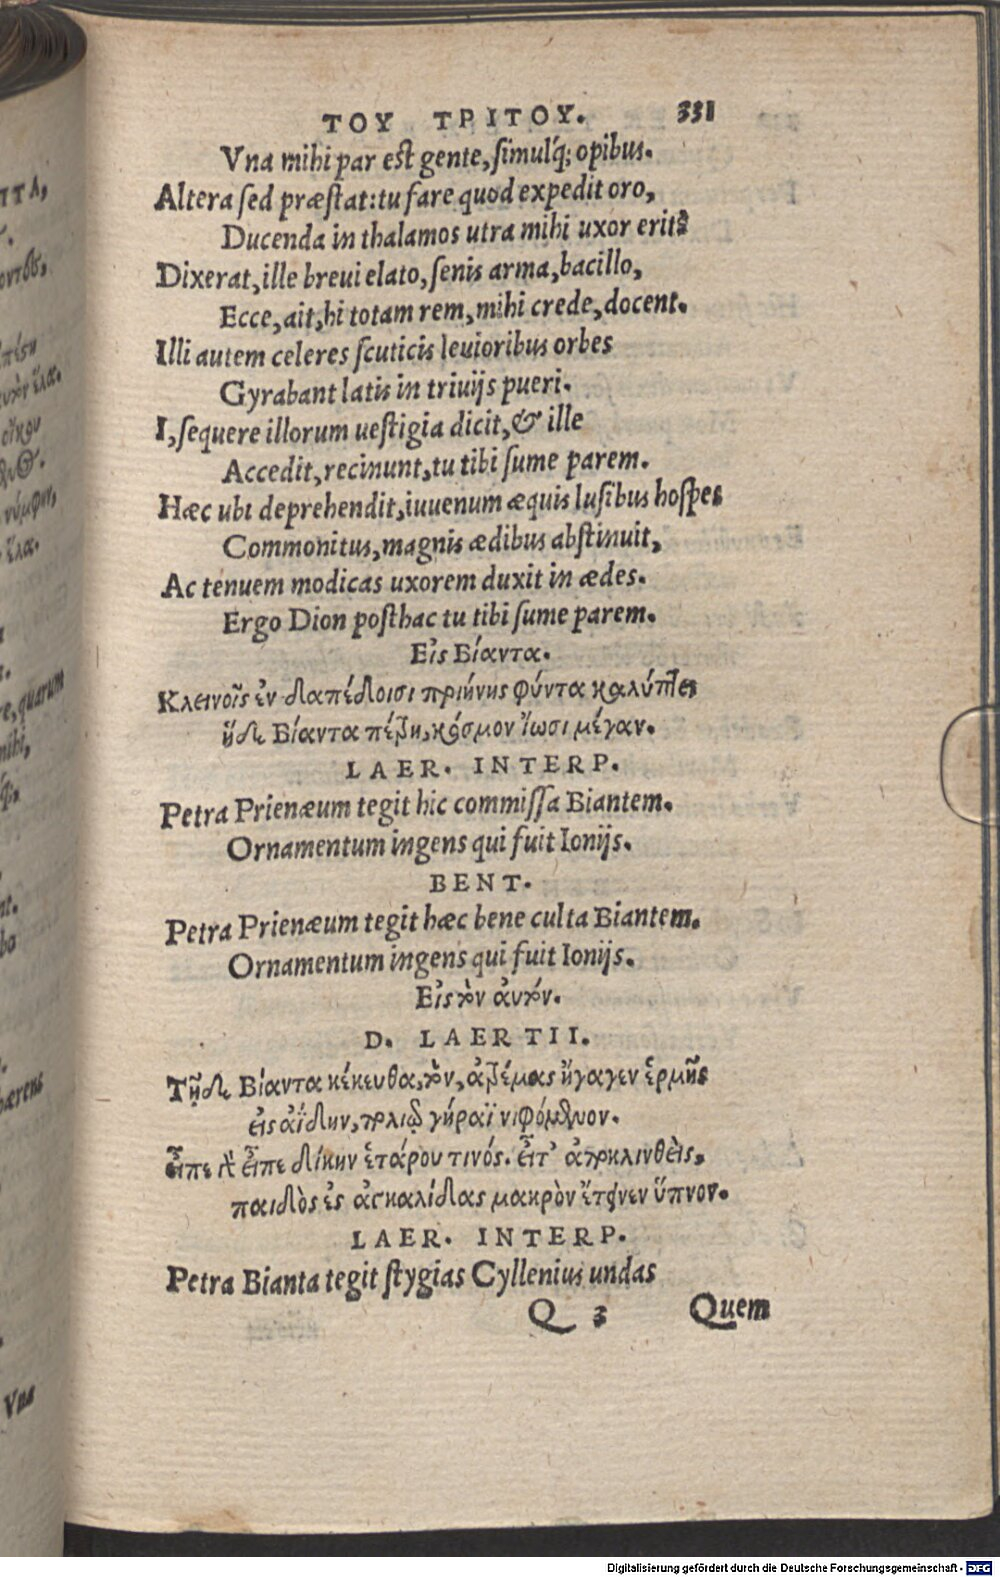 ΤΟΥ ΤΡΙΤΟΥ. 331
Vna mihi par est gente, simulq́; opibus.
Altera sed præstat: tu fare quod expedit oro,
Ducenda in thalamos utra mihi uxor erit?
Dixerat, ille breui elato, senis arma, bacillo,
Ecce, ait, hi totam rem, mihi crede, docent.
Illi autem celeres scuticis leuioribus orbes
Gyrabant latis in triuijs pueri.
I, sequere illorum uestigia dicit, & ille
Accedit, recinunt, tu tibi sume parem.
Hæc ubi deprehendit, iuuenum æquis lusibus hospes
Commonitus, magnis ædibus abstinuit,
Ac tenuem modicas uxorem duxit in ædes.
Ergo Dion posthac tu tibi sume parem.
Εἰς Βίαντα.
Κλεινοῖς ἐν δαπέδοισι πριήνης φύντα καλύπτει
ἥδε Βίαντα πέτρη, κόσμον Ἴωσι μέγαν.
LAER. INTERP.
Petra Prienæum tegit hic commissa Biantem.
Ornamentum ingens qui fuit Ionijs.
BENT.
Petra Prienæum tegit hæc bene culta Biantem.
Ornamentum ingens qui fuit Ionijs.
Εἰς τὸν αὐτόν.
D. LAERTII.
Τῇδε Βίαντα κέκευθα, τὸν, ἀτρέμας ἤγαγεν ἑρμῆς
εἰς ἀΐδην, πολιῷ γήραϊ νιφόμενον.
εἶπε γὰρ εἶπε δίκην ἑτάρου τινός. εἶτ' ἀποκλινθεὶς,
παιδὸς ἐς ἀγκαλίδας μακρὸν ἔτεινεν ὕπνον.
LAER. INTERP.
Petra Bianta tegit stygias Cyllenius undas
Q 3 Quem
Vna
Digitalisierung gefördert durch die Deutsche Forschungsgemeinschaft - DFG